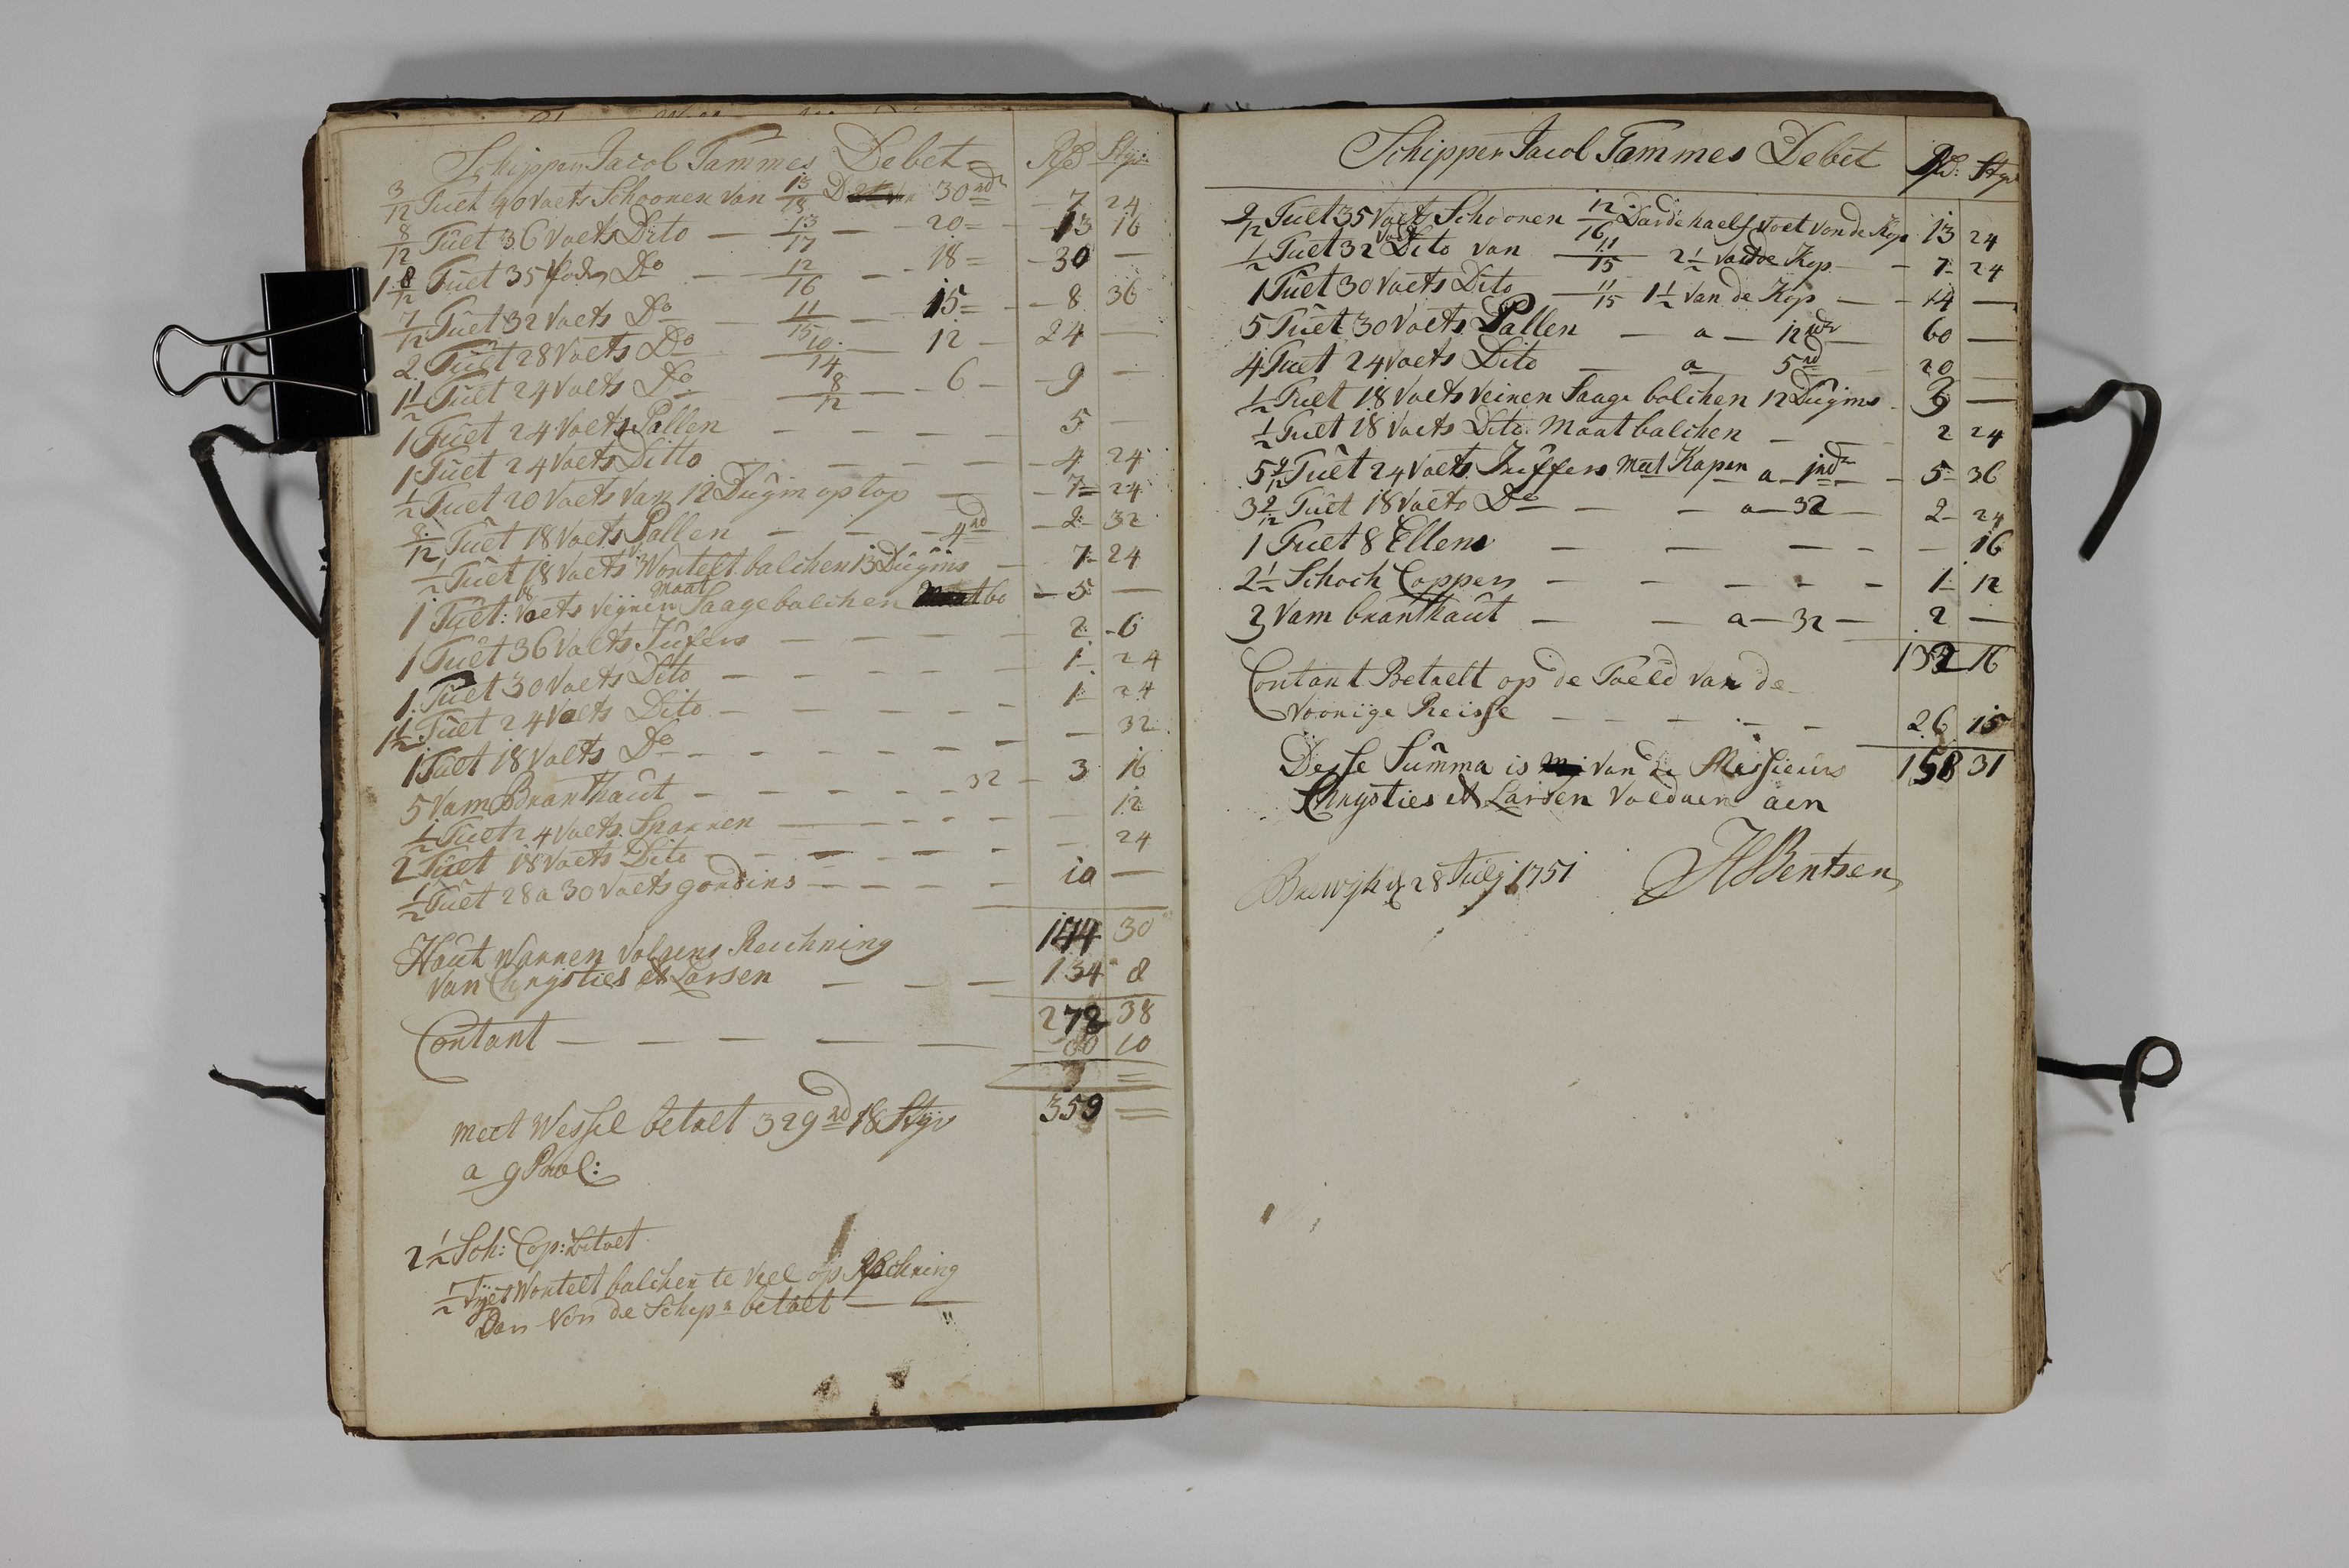 Schipper Jacob Tammes Debet Rd Styv
3/12 Tuet 40 Voets Schooren Van 13/18 D 30 rd 7 24
8/12 Tuet 36 Voets Dito 13/17 20 13 16
1 8/12 Tuet 35 Do 12/16 18 30
7/12 Tuet 32 Voets Do 11/15 15 8 36
2 Tuet 28 Voets Do 10/14 12 24
1 1/2 Tuet 24 Voets Do 8/12 6 9
1 Tuet 24 Voets Pallen 5
1 Tuet 24 Voets Ditto 4 24
1/2 Tuet 20 Voets Vam 12 Dugm op top 7 24
8/12 Tuet 18 Voets Pallen 4 rd 2 32
1/2 Tuet 18 Voets Wortelt balcken 13 Dugms 7 24
1 Tuet: 18 Voets Veynen Maat Saagebalcken 5
1 Tuet 36 Voets Jufers 2 6
1 Tuet 30 Voets Dito 1 24
1 1/2 Tuet 24 Voets Dito 1 24
1 Tuet 18 Voets Do 32
5 Vam Branthaut 32 3 16
1/2 Tuet 24 Voets Sparren 12
2 Tuet 18 Voets Dito 24
1/2 Tuet 28 a 30 Voets gordins 10
144 30
Haut Warren Volgens Reichning
Van Chrysties et Larsen 134 8
278 38
Contant 80 10
359
meet Wessel betalt 329 rd 18 Styv
a g
2 1/2 Sch: Cop: betalt
1/2 Tyet Wortelt balcken te Veel op Rechning
Dan Von de Schipr betalt
Schipper Jacob Tammes Debet Rd: Styv
9/12 Tuet 35 Voets Schooren 12/16 Dardehaelf Voet Van de Kop 13 24
1/2 Tuet 32 Voets Dito Van 11/15 2 1/2 Van de Kop 7 24
1 Tuet 30 Voets Dito 11/15 1 1/2 Van de Kop 14
5 Tuet 30 Voets Pallen a 12 rdr 60
4 Tuet 24 Voets Dito a 5 rd 20
1/2 Tuet 18 Voets Veinen Saage balcken 12 Dugms 3
1/2 Tuet 18 Voets Dito Maatbalcken 2 24
5 9/12 Tuet 24 Voets Juffers met Kapen a 1 rdr 5 36
3 9/12 Tuet 18 Voets Do a 32 2 24
1 Tuet 8 Ellens 16
2 1/2 Schock Coppers 1 12
3 Vam branthaut a 32 2
132 16
Contant Betaelt op de Taeld Van de
Voorige Reisse 26 15
Desse Summa is Van de Messieurs 158 31
Chrysties et Larsen Voeduen aen
28 July 1751 HBentsen